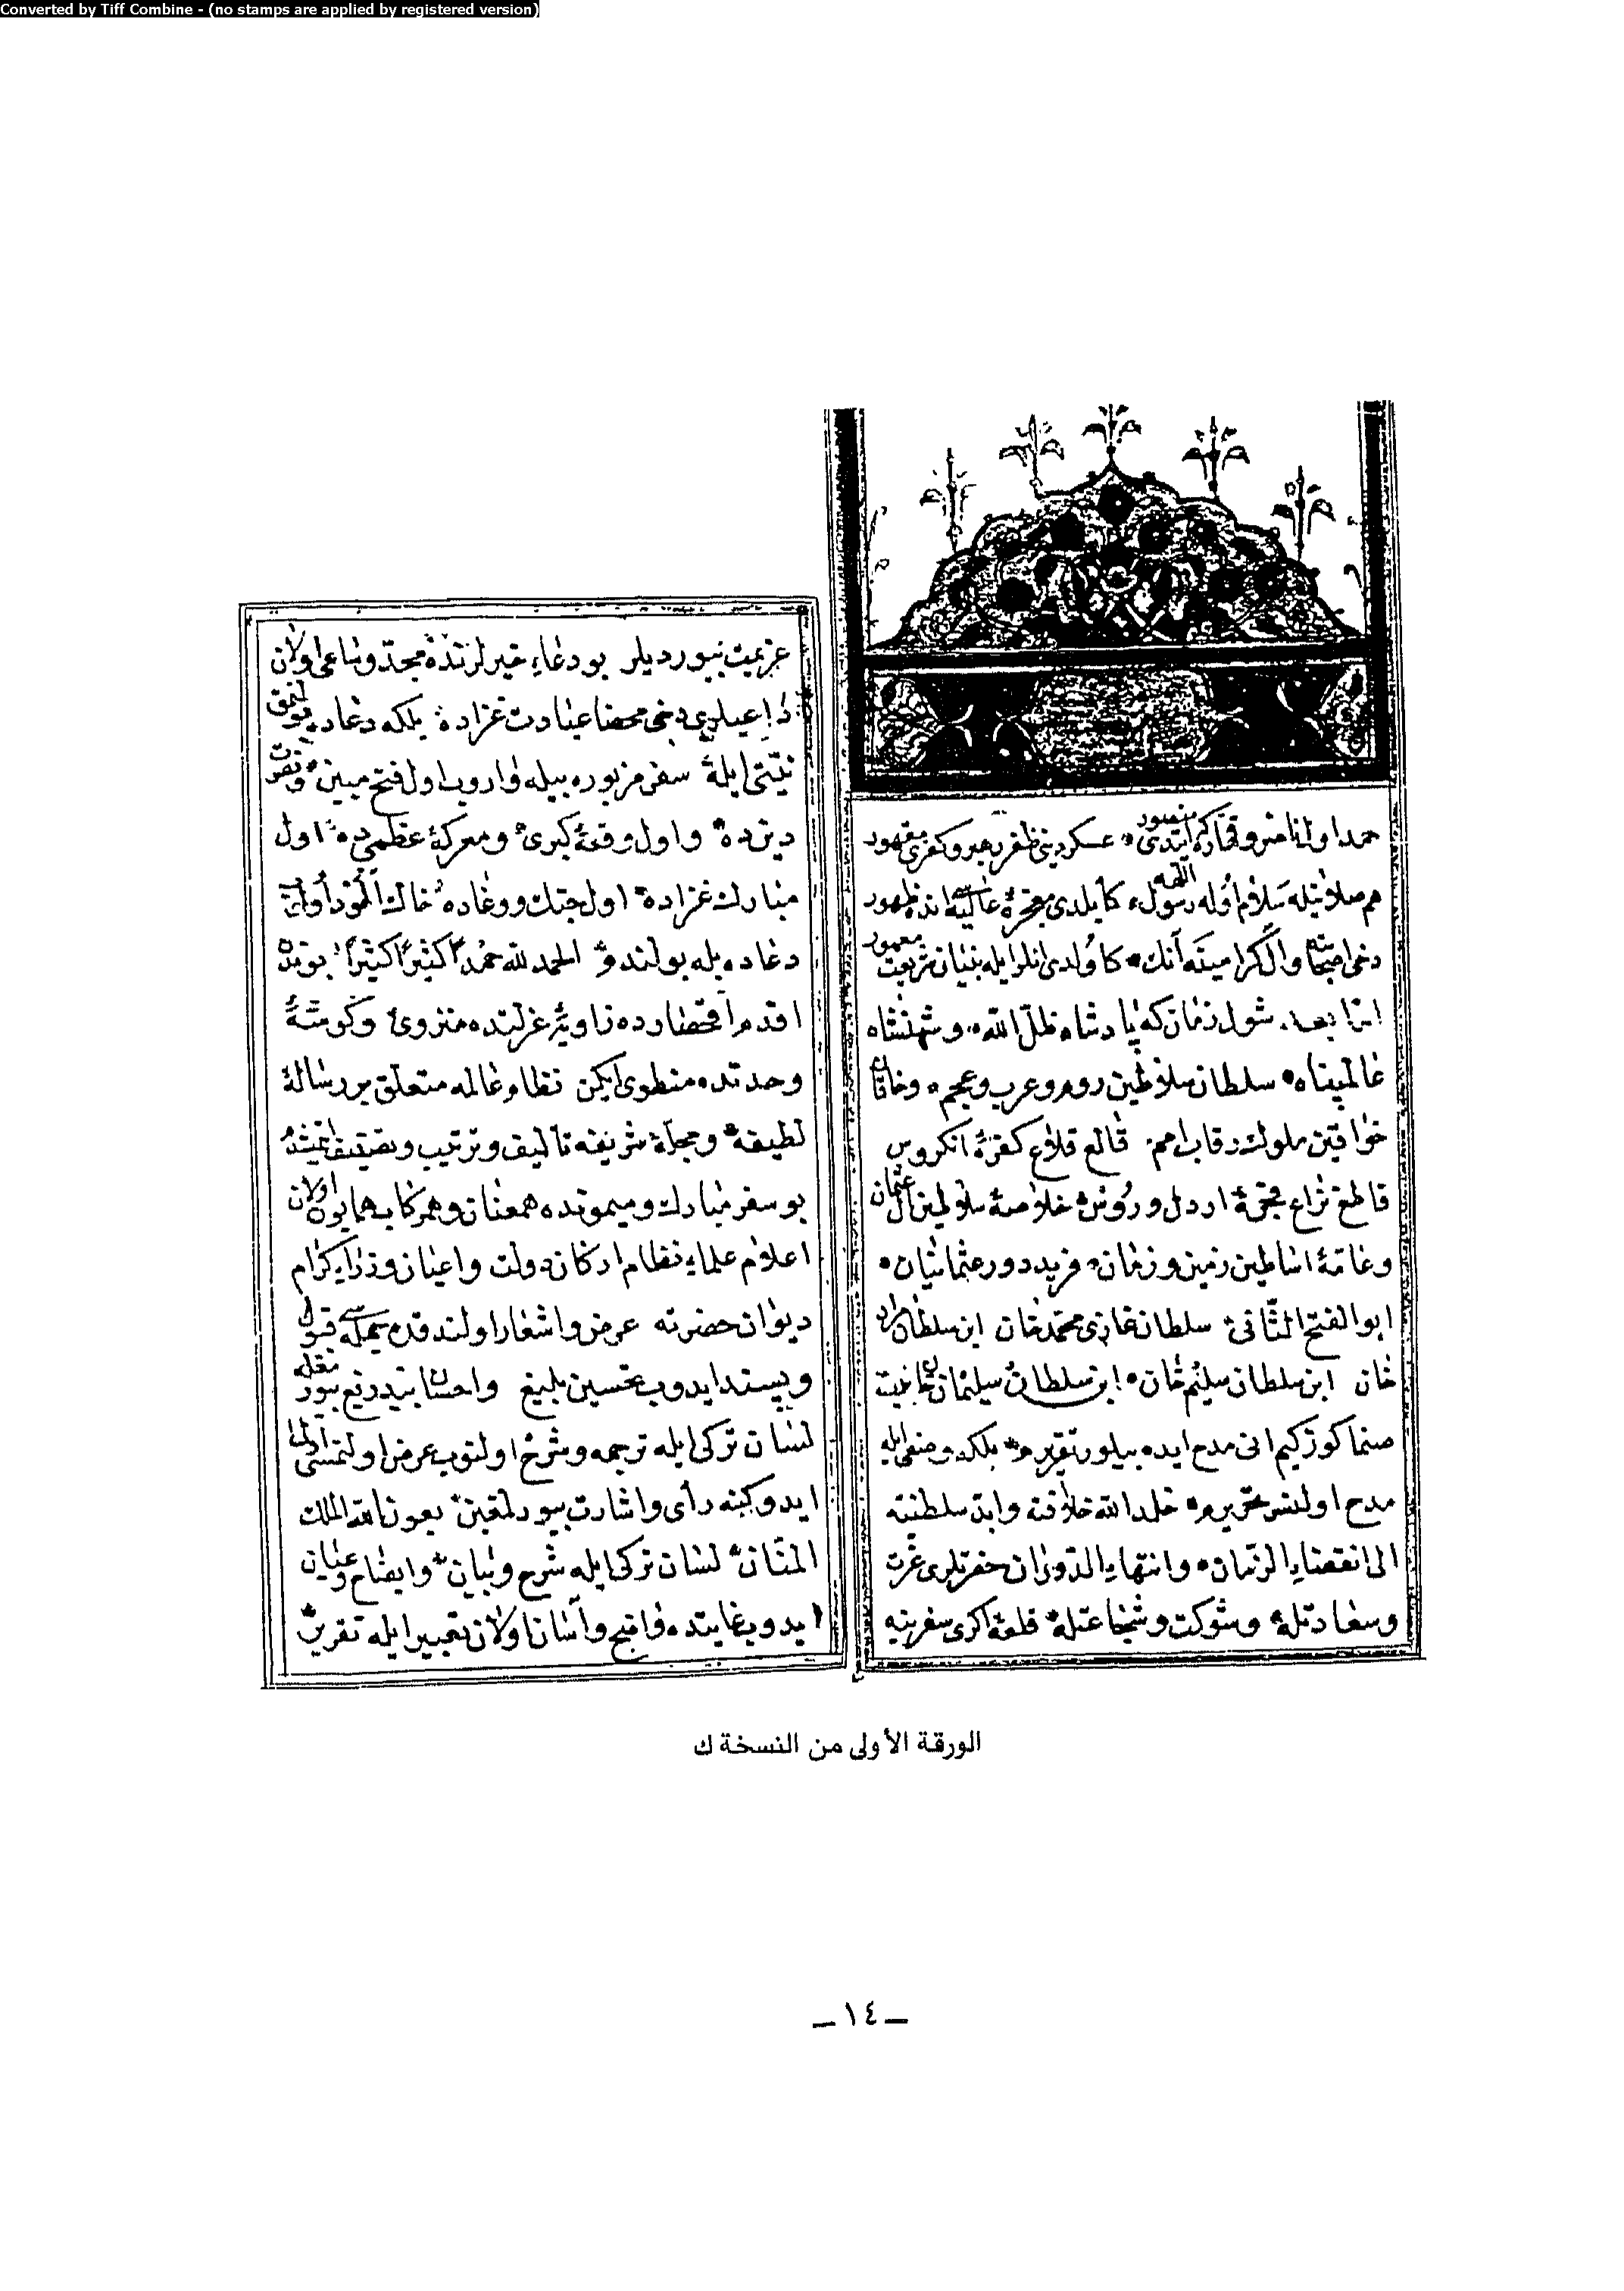 Converted by Tiff Combine - (no stamps are applied by registered version)
حمد اول ناصر و قهاره كه ايتدى منصور عسكر دينى ظفر كفرى مقهور
هم صلاتيله سلام اوله رسول الله كا يلدى معجزهٔ عاليه ظهور
دخى اصحاب وال كرامينه آنك كا ولدى انلر ايله بنيان شريعت معمور
اما بعد شول زمان كه پادشاه ظل الله و شهنشاه
عالمپناه سلطان سلاطين روم و عرب و عجم و خاقان
خواقين ملوك رقاب امم قالع قلاع كفرهٔ انكروس
قاطع نزاع فجرهٔ اردل و روس خلاصهٔ سلاطين آل عثمان
و اساطين زمين و زمان فريد دور عثمانيان
ابو الفتح الثانى سلطان غازى محمد خان ابن سلطان مراد
خان ابن سلطان سليم خان ابن سلطان سليمان خان
كوركيم انى مدح ايده بيلور تقريرم بلكه وصفى ايله
مدح اولنسر تحريرم خلد الله خلافته وابد سلطنته
الى انقضاء الزمان وانتهاء الدوران حضرتلرى عزت
و سعادتله و شوكت و شجاعتله قلعهٔ اكرى سفرينه
عزيمت بيورديلر بو دعاء خير لرنده مجد و ساعى اولان
داعيلرى دخى محضا عبادت غزاده بلكه دعاده بولنمق
نيتى ايله سفر مزبوره بيله واروب اول فتح مبين و نصرت
دينده و اول وقعهٔ كبرى و معركهٔ عظمى ده اول
مبارك غزاده اول جنك و وغاده خاك
دعاده بيله بولندو الحمد لله حمدا كثيرا كثيرا بوندن
اقدم اقحصارده زاويهٔ عزلتده منزوى و كوشهٔ
وحدتده منطوى ايكن نظام عالمه متعلق بر رسالهٔ
لطيفه و مجلهٔ شريفه تأليف و ترتيب و تصنيف
بو سفر مبارك و ميمونده همعنان و همركاب همايون اولان
اعلام علماء نظام اركان دولت و اعيان وزراء كرام
ديوان حضرته عرض و اشعار اولندقده جمله سى قبول
و پسند ايدوب تحسين بليغ و احسان بيدريغ
لسان تركى ايله ترجمه و شرح اولنوب عرض اولنمسى
ايدوكينه رأى و اشارت بيورلمغين بعون الله الملك
المنان لسان تركى ايله شرح و بيان و ايضاح و عيان
ايدوب غايتده واضح و آسان اولان تعبير ايله تقرير
الورقة الأولى من النسخة ك
– ١٤ –